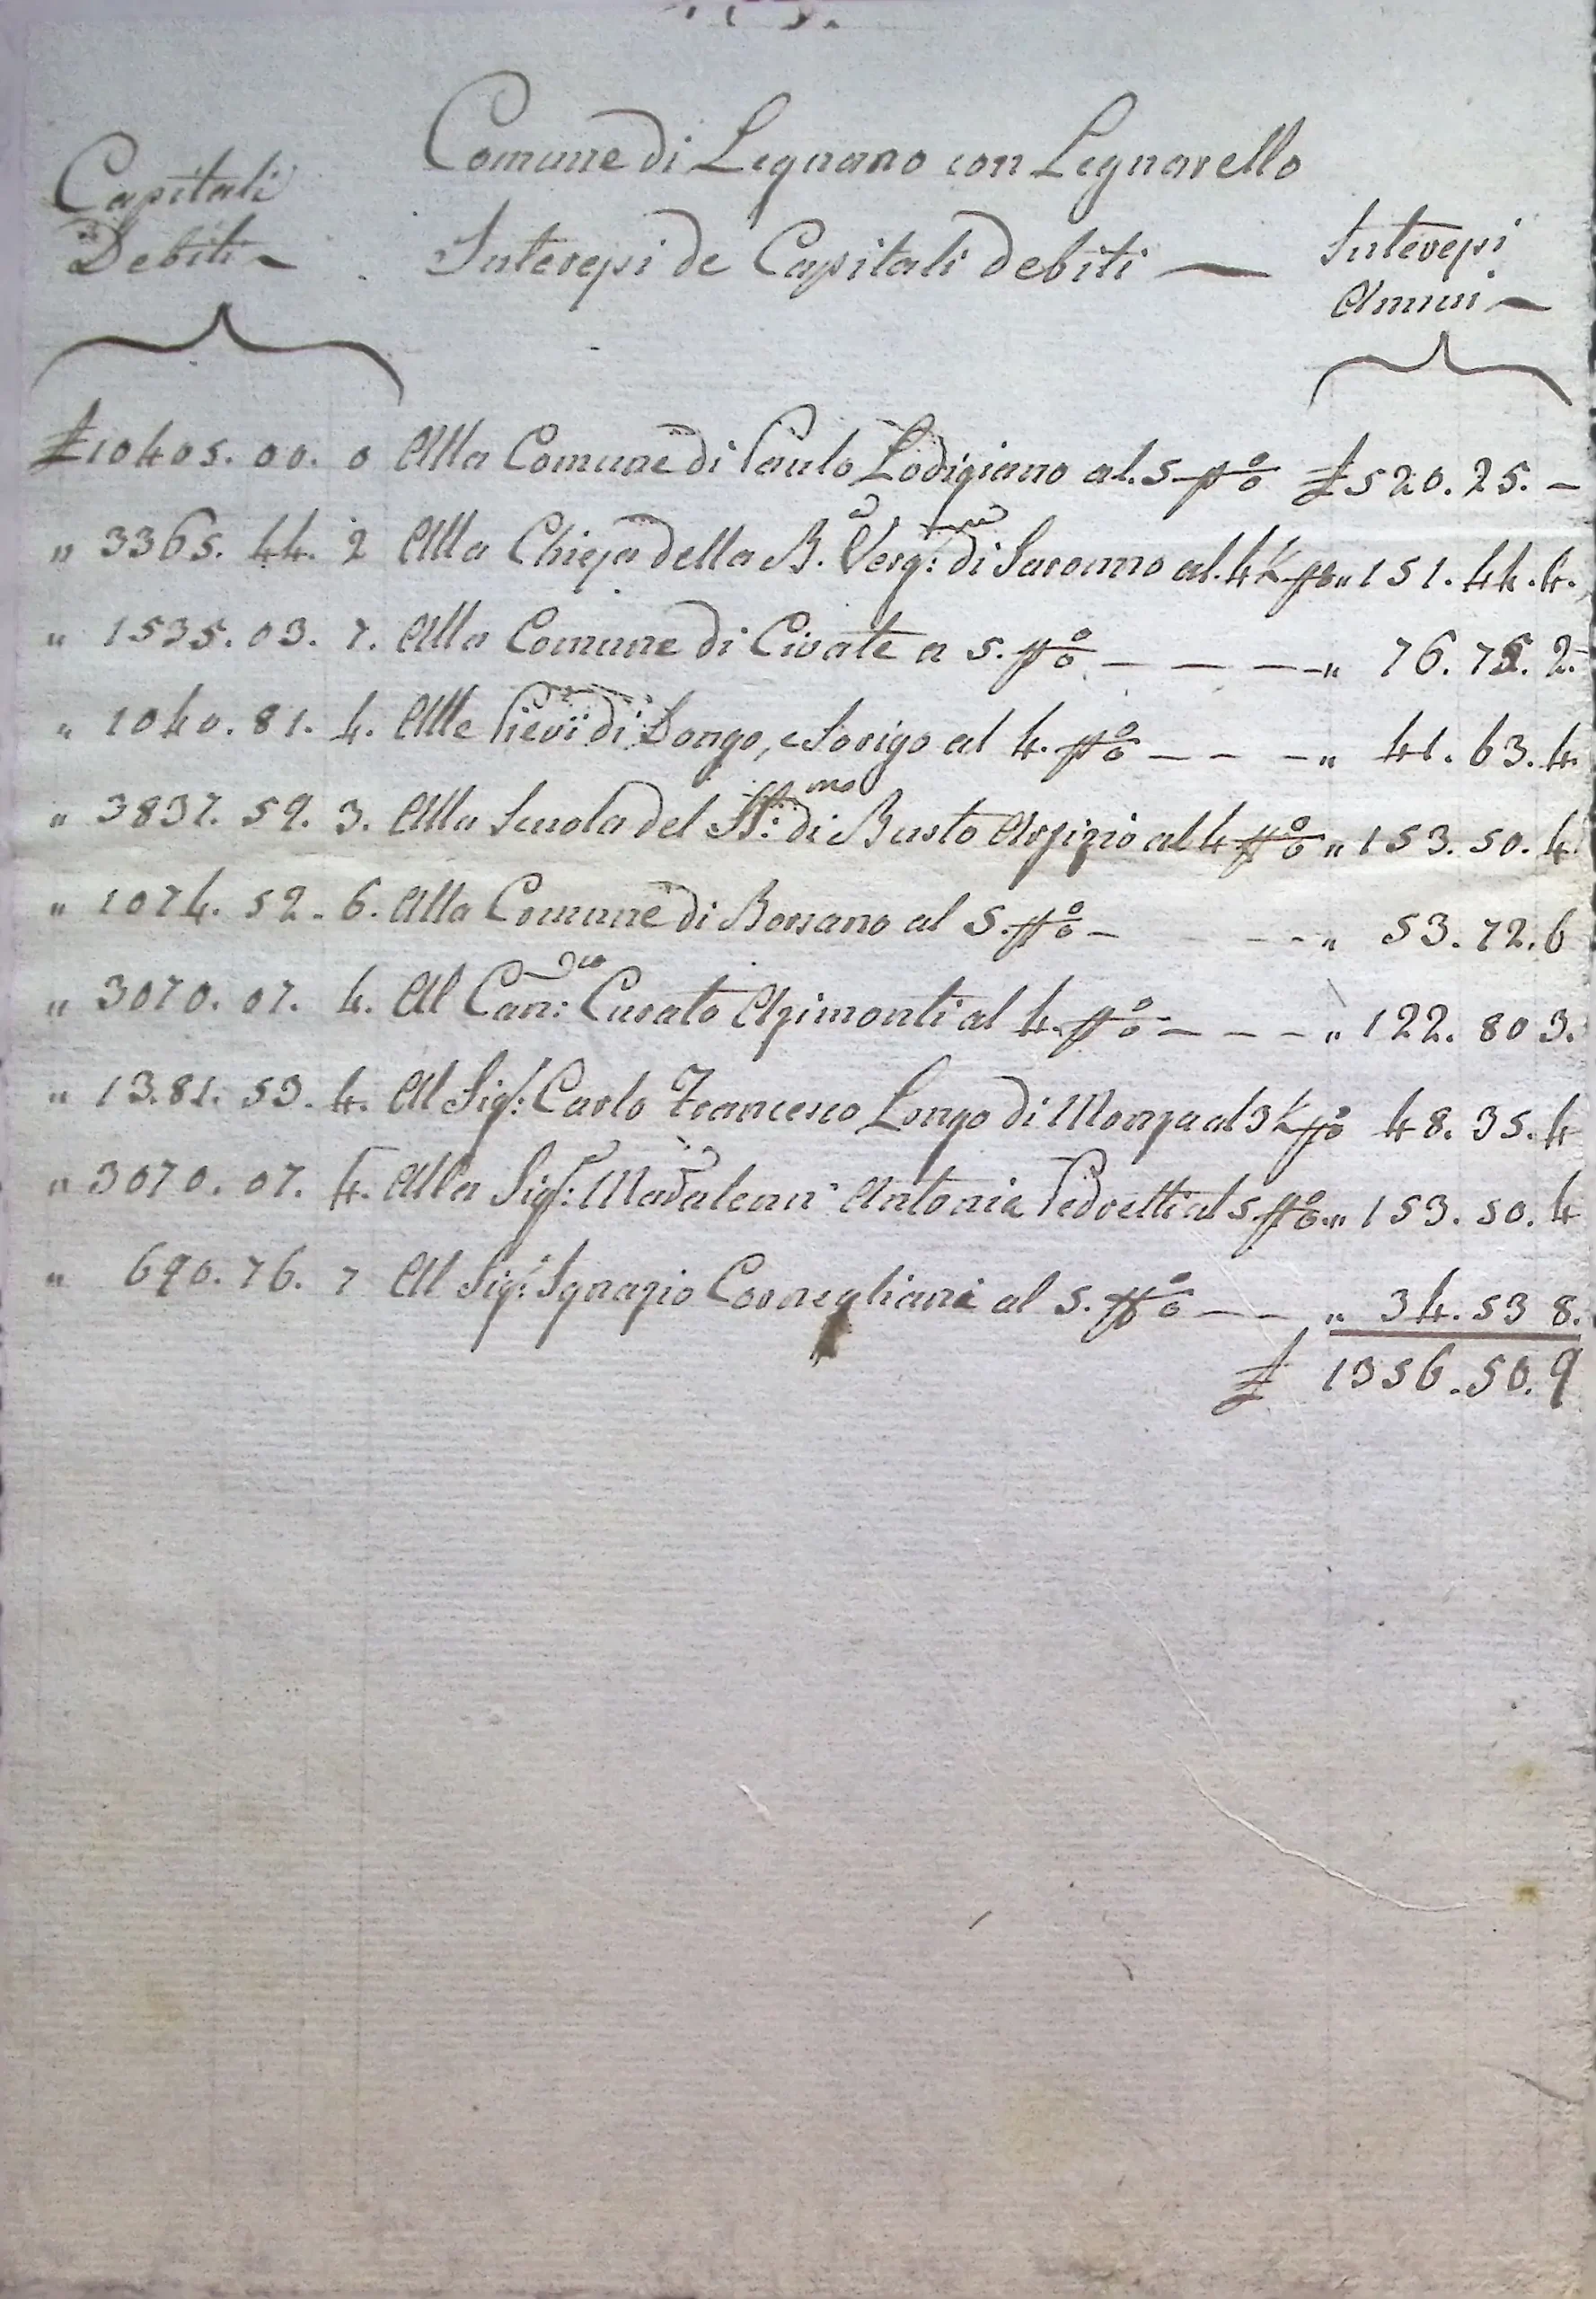 Comune di Legnano con Legnarello
Capitali
Debiti —
Interessi de Capitali debiti —
Interessi
Annui —
£ 10405. 00. 0 Alla Comune di Paulo Lodigiano al. 5. p% £ 520. 25. —
" 3365. 44. 2 Alla Chiesa della B.a Verg:ne di Saronno al. 4½ p% " 151. 44. 4.
" 1535. 03. 7. Alla Comune di Civate a 5. p% — — — " 76. 75. 2.
" 1040. 81. 4. Alle Pievi di Dongo, e Sorigo al 4. p% — — — " 41. 63. 4.
" 3837. 59. 3. Alla Scuola del SS:mo di Busto Arsizio al 4 p% " 153. 50. 4
" 1074. 52. 6. Alla Comune di Borsano al 5. p% — — — " 53. 72. 6
" 3070. 07. 4. Al Can:co Curato Asimonti al 4. p% — — — " 122. 80 3.
" 13.81. 53. 4. Al Sig.r Carlo Francesco Longo di Monza al 3½ p% 48. 35. 4
" 3070. 07. 4. Alla Sig.ra Madalena Antonia Pedretti al 5 p% " 153. 50. 4
" 690. 76. 7 Al Sig.r Ignazio Cornegliani al 5. p% — — " 34. 53 8.
£ 1356. 50. 9